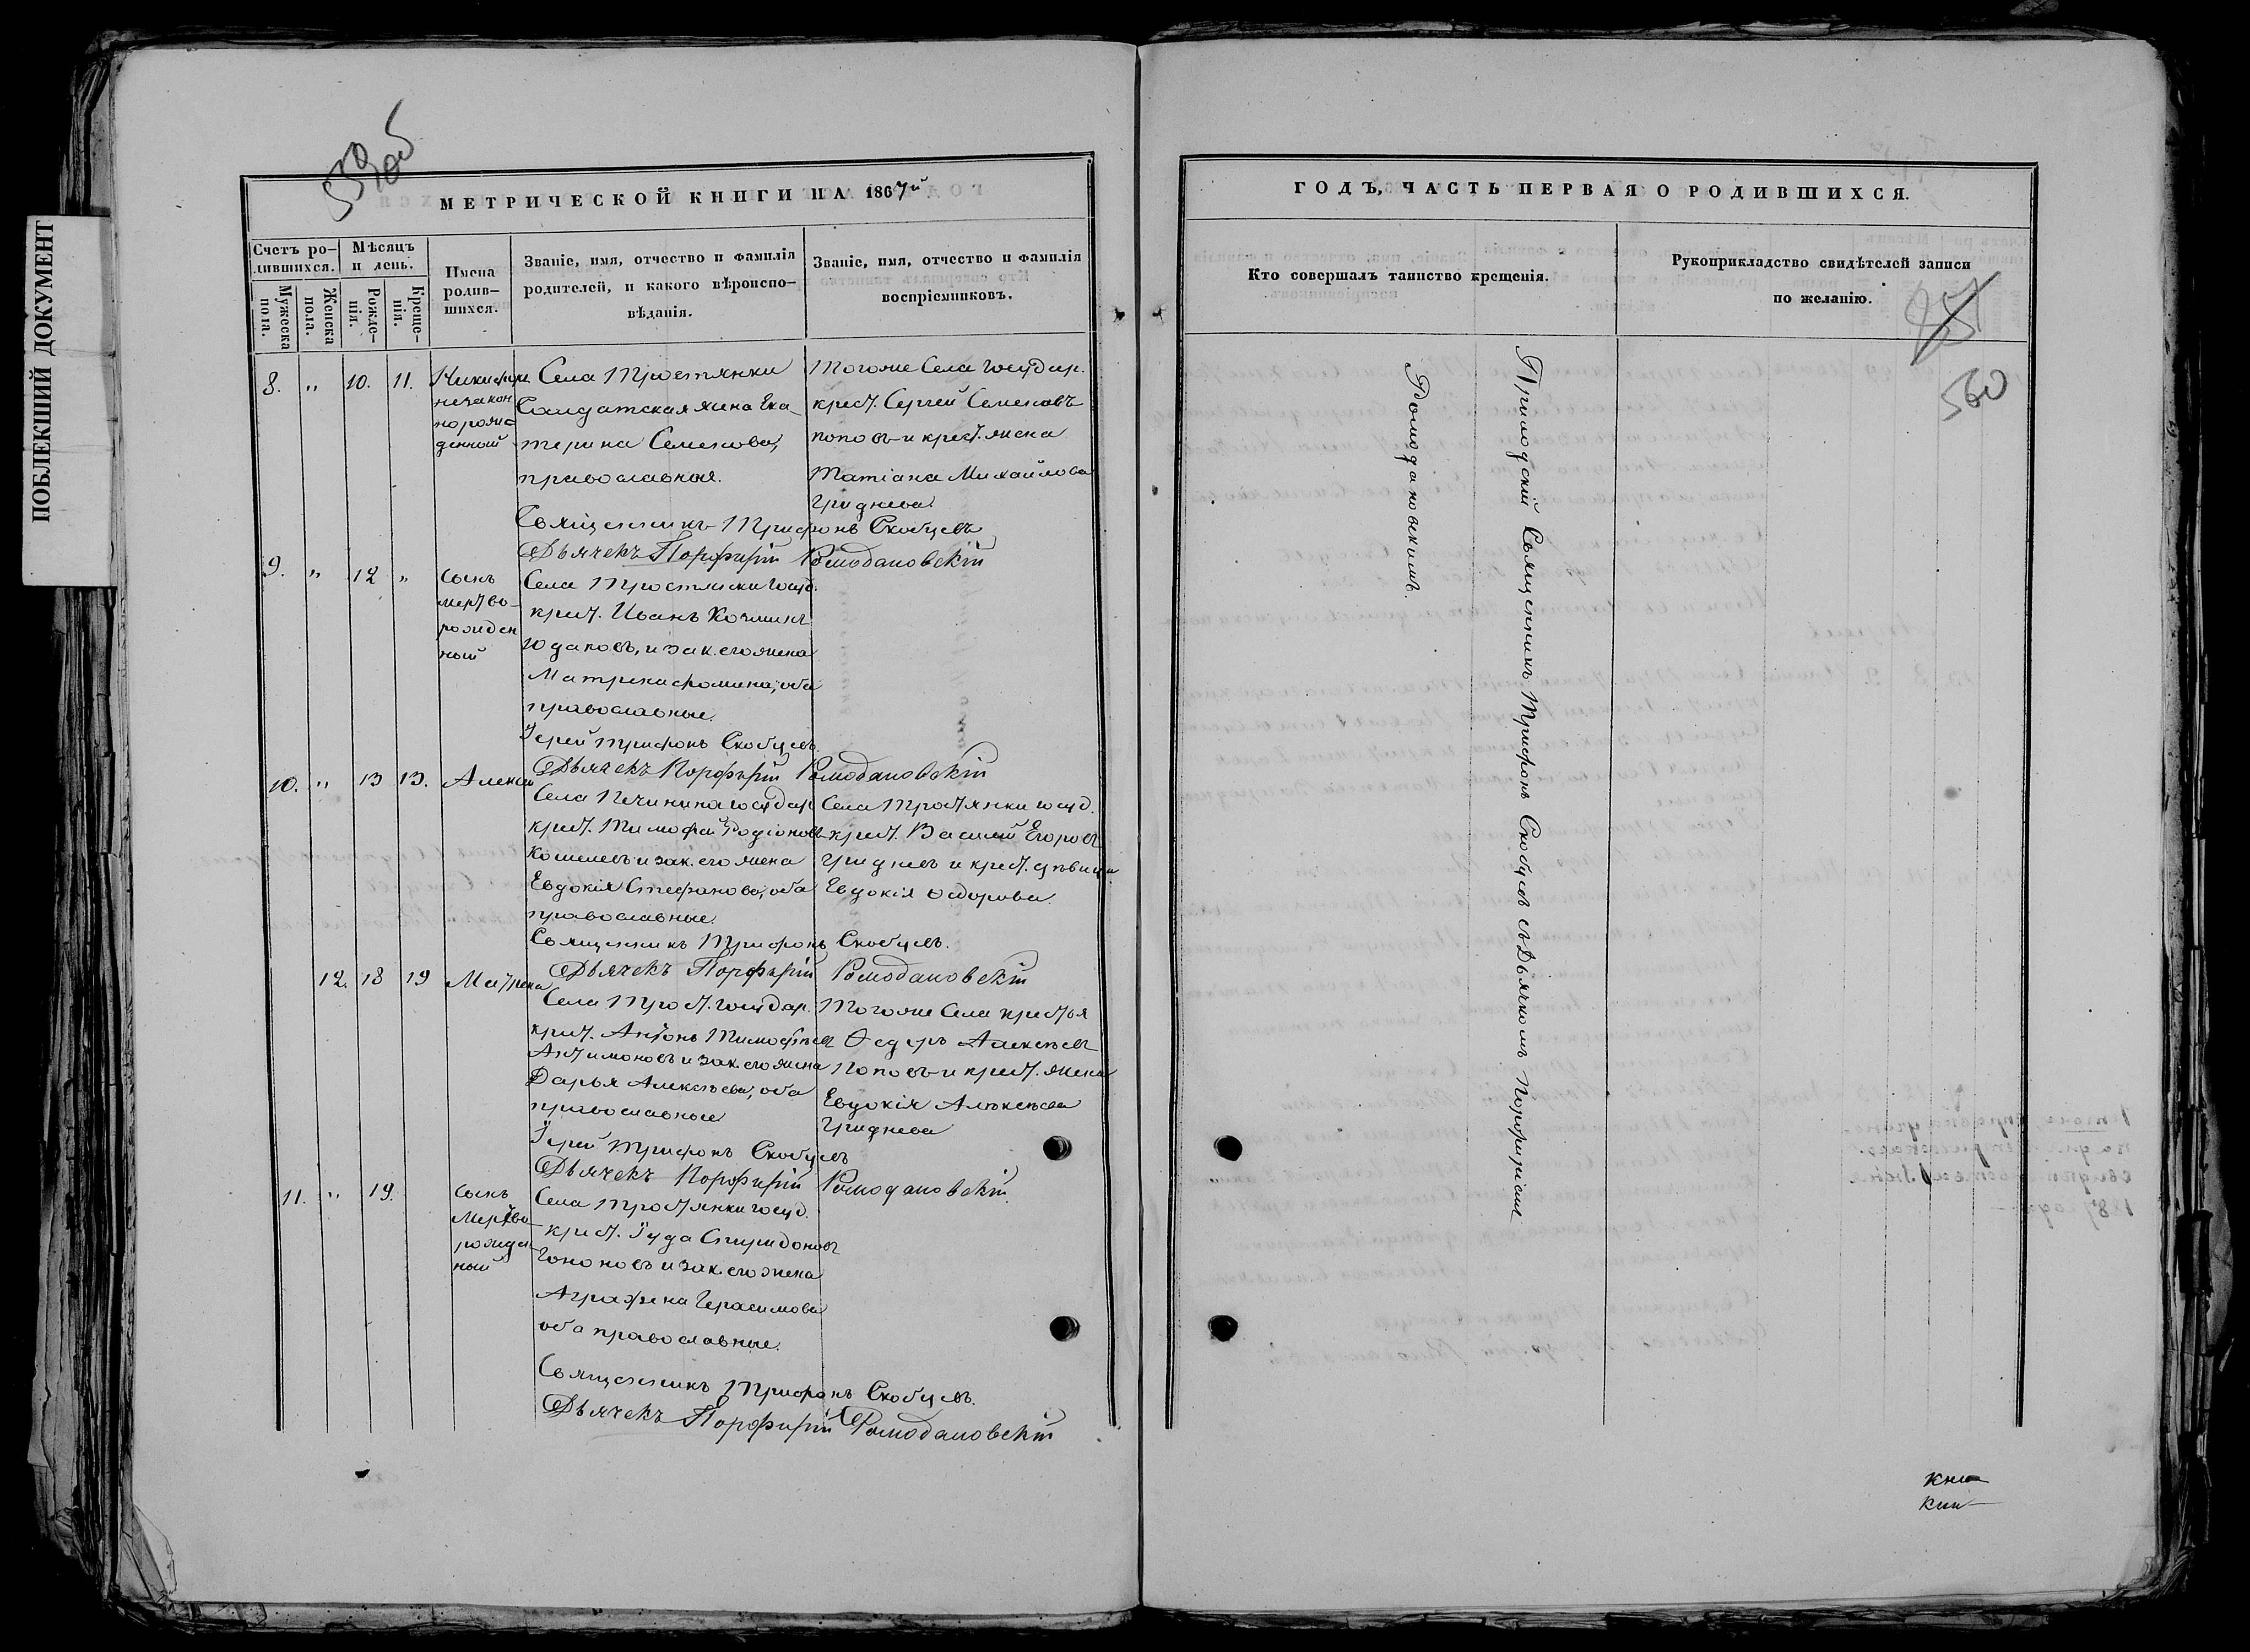 ПОБЛЕКШИЙ ДОКУМЕНТ
559об
МЕТРИЧЕСКОЙ КНИГИ НА 1867й
Счетъ ро-
дившихся.
Мужеска
пола.
Женска
пола.
Мѣсяцъ
и день.
Рожде-
нія.
Креще-
нія.
Имена
родив-
шихся.
Званіе, имя, отчество и фамилія
родителей, и какого вѣроиспо-
вѣданія.
Званіе, имя, отчество и фамилія
воспріемниковъ.
8. " 10. 11.
Никифоръ
незакон
норожд
денный
Села Тростянки
Солдатская жена Ека-
терина Семенова,
православная.
Тогоже Села государ.
крест. Сергей Семеновъ
Поповъ и крест. жена
Татіана Михайлова
Гриднева.
Священникъ Трифонъ Скобцевъ
Дьячекъ Порфирій Ромодановскій
9. " 12 "
Сынъ
мертво-
рожден
ный
Села Тростянки госуд.
крест. Иванъ Козминъ
Юдаковъ, и зак. его жена
Матрена Фомина, оба
православные.
Іерей Трифонъ Скобцевъ
Дьячекъ Порфирій Ромодановскій
10. " 13 13. Алексей
Села Печинина государ
крест. Тимофей Родіоновъ
Кошелевъ и зак. его жена
Евдокія Стефанова, оба
православные.
Села Тростянки госуд.
крест. Василій Егоровъ
Гридневъ и крест. дѣвица
Евдокія Ѳедорова.
Священникъ Трифонъ Скобцевъ.
Дьячекъ Порфирій Ромодановскій
12. 18 19 Матрена
Села Трост. государ.
крест. Антонъ Тимофѣевъ
Антимоновъ и зак. его жена
Дарья Алексѣева, оба
православные
Тогоже Села крестья
Ѳедоръ Алексѣевъ
Поповъ и крест. жена
Евдокія Алексѣева
Гриднева
Іерей Трифонъ Скобцевъ
Дьячекъ Порфирій Ромодановскій
11. " 19.
Сынъ
Мертво
рожден
ный
Села Тростянки госуд.
крест. Іуда Спиридоновъ
и зак. его жена
Аграфена Герасимова
оба православные.
Священникъ Трифонъ Скобцевъ.
Дьячекъ Порфирій Ромодановскій
ГОДЪ, ЧАСТЬ ПЕРВАЯ О РОДИВШИХСЯ.
Кто совершалъ таинство крещенія.
Рукоприкладство свидѣтелей записи
по желанію.
560
Приходскій Священникъ Трифонъ Скобцевъ съ Дьячкомъ Порфиріемъ
Ромодановскимъ.